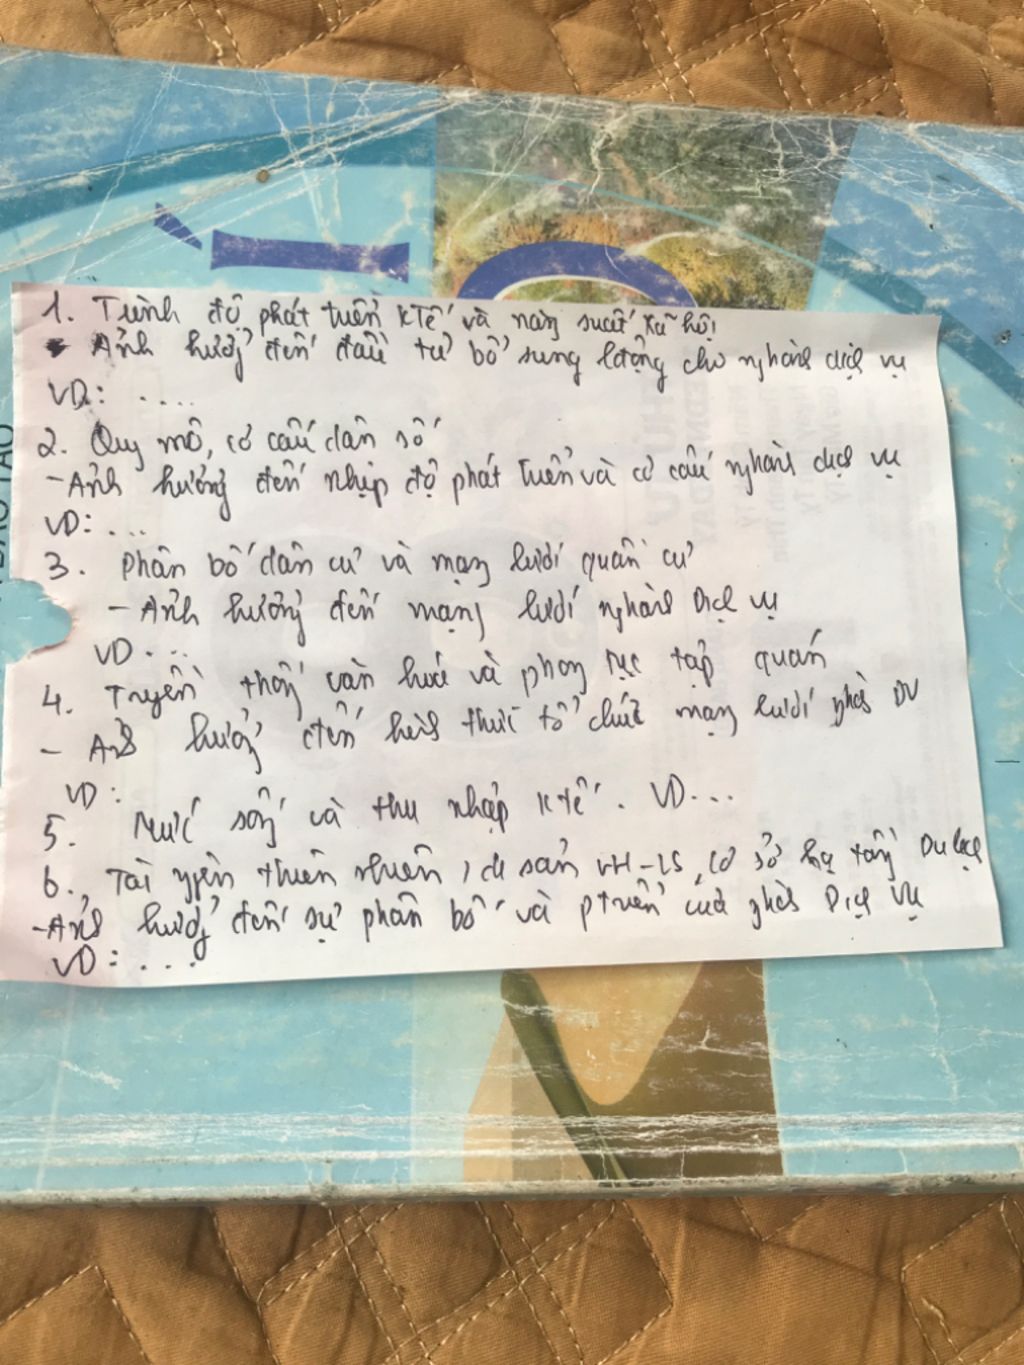 1. Trình độ phát triển KTế và năng suất xã hội
- Ảnh hưởng đến đầu tư bổ sung lđộng cho nghành dịch vụ
VD: ....
2. Quy mô, cơ cấu dân số
- Ảnh hưởng đến nhịp độ phát triển và cơ cấu nghành dịch vụ
VD: ...
3. Phân bố dân cư và mạng lưới quần cư
- Ảnh hưởng đến mạng lưới nghành Dịch vụ
VD ...
4. Truyền thống văn hoá và phong tục tập quán
- Ảnh hưởng đến hình thức tổ chức mạng lưới nghành DV
VD:
5. Mức sống và thu nhập Ktế. VD...
6. Tài nguyên thiên nhiên, di sản VH-LS, cơ sở hạ tầng Du lịch
- Ảnh hưởng đến sự phân bố và ptriển của nghành Dịch Vụ
VD: ...